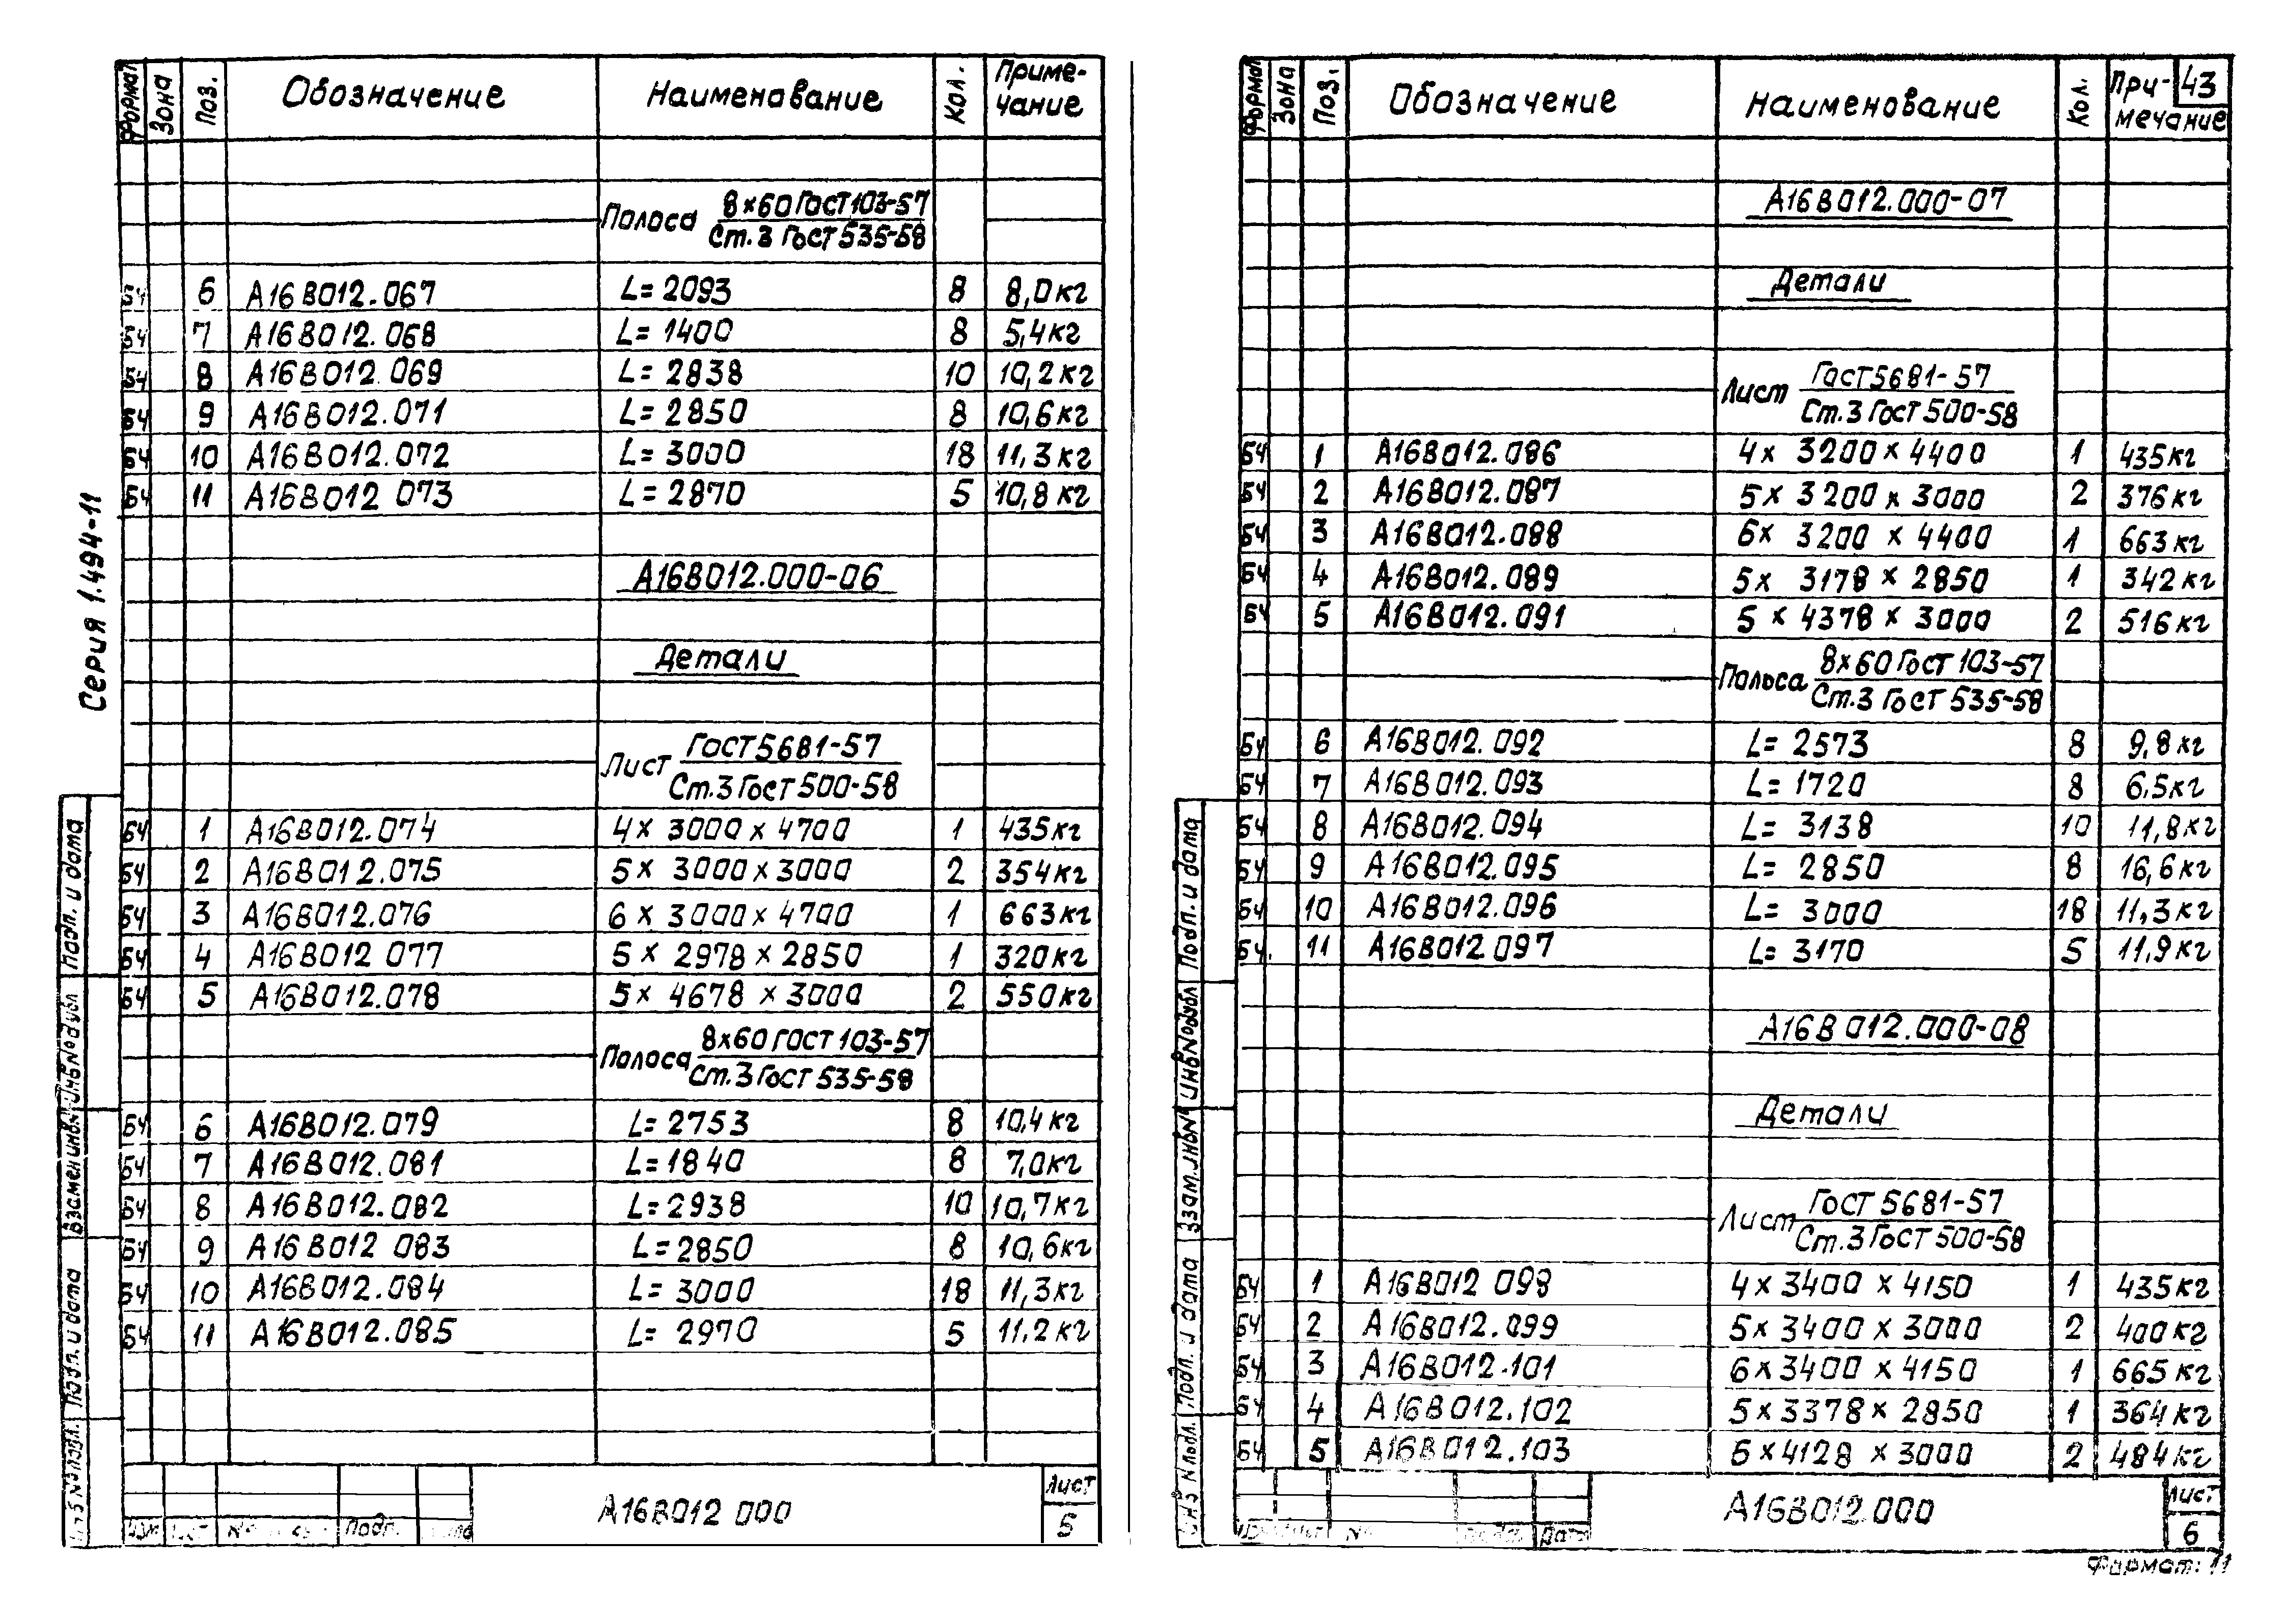 Серия 1.494-11
Формат Зона Поз. Обозначение Наименование Кол. Приме-
чание
Полоса 8х60 ГОСТ 103-57
Ст.3 ГОСТ 535-58
БЧ 6 А16В012.067 L= 2093 8 8,0кг
БЧ 7 А16В012.068 L= 1400 8 5,4кг
БЧ 8 А16В012.069 L= 2838 10 10,2кг
БЧ 9 А16В012.071 L= 2850 8 10,6кг
БЧ 10 А16В012.072 L=3000 18 11,3кг
БЧ 11 А16В012 073 L= 2870 5 10,8кг
А16В012.000-06
Детали
Лист ГОСТ 5681-57
Ст.3 ГОСТ 500-58
БЧ 1 А16В012.074 4х 3000 х 4700 1 435кг
БЧ 2 А16В012.075 5х 3000 х 3000 2 354кг
БЧ 3 А16В012.076 6 х 3000 х 4700 1 663кг
БЧ 4 А16В012 077 5 х 2978 х 2850 1 320кг
БЧ 5 А16В012.078 5х 4678 х 3000 2 550кг
Полоса 8х60 ГОСТ 103-57
Ст.3 ГОСТ 535-58
БЧ 6 А16В012.079 L= 2753 8 10,4кг
БЧ 7 А16В012.081 L=1840 8 7,0кг
БЧ 8 А16В012.082 L=2938 10 10,7кг
БЧ 9 А16В012 083 L=2850 8 10,6кг
БЧ 10 А16В012.084 L= 3000 18 11,3кг
БЧ 11 А16В012.085 L= 2970 5 11,2кг
Подп. и дата
Инв № дубл
Взамен инв. №
Подп. и дата
Подп.
А16В012 000
Лист
5
Формат Зона Поз. Обозначение Наименование Кол. При-
мечание
43
А16В012.000-07
Детали
Лист ГОСТ 5681-57
Ст.3 ГОСТ 500-58
БЧ 1 А16В012.086 4х 3200 х 4400 1 435кг
БЧ 2 А16В012.087 5х 3200 х 3000 2 376кг
БЧ 3 А16В012.088 6х 3200 х 4400 1 663кг
БЧ 4 А16В012.089 5х 3178 х 2850 1 342кг
БЧ 5 А16В012.091 5 х 4378 х 3000 2 516кг
Полоса 8х60 ГОСТ 103-57
Ст.3 ГОСТ 535-58
БЧ 6 А16В012.092 L= 2573 8 9,8кг
БЧ 7 А16В012.093 L= 1720 8 6,5кг
БЧ 8 А16В012.094 L= 3138 10 11,8кг
БЧ 9 А16В012.095 L= 2850 8 16,6кг
БЧ 10 А16В012.096 L= 3000 18 11,3кг
БЧ 11 А16В012.097 L= 3170 5 11,9кг
А16В012.000-08
Детали
Лист ГОСТ 5681-57
Ст.3 ГОСТ 500-58
БЧ 1 А16В012 098 4 х 3400 х 4150 1 435кг
БЧ 2 А16В012.099 5х 3400 х 3000 2 400кг
БЧ 3 А16В012.101 6х3400 х 4150 1 665кг
БЧ 4 А16В012.102 5х3378х 2850 1 364кг
БЧ 5 А16В012.103 6х4128 х3000 2 484кг
Подп. и дата
Инв № дубл
Взам. инв №
Подп. и дата
Дата
А16В012.000
Лист
6
Формат: 11